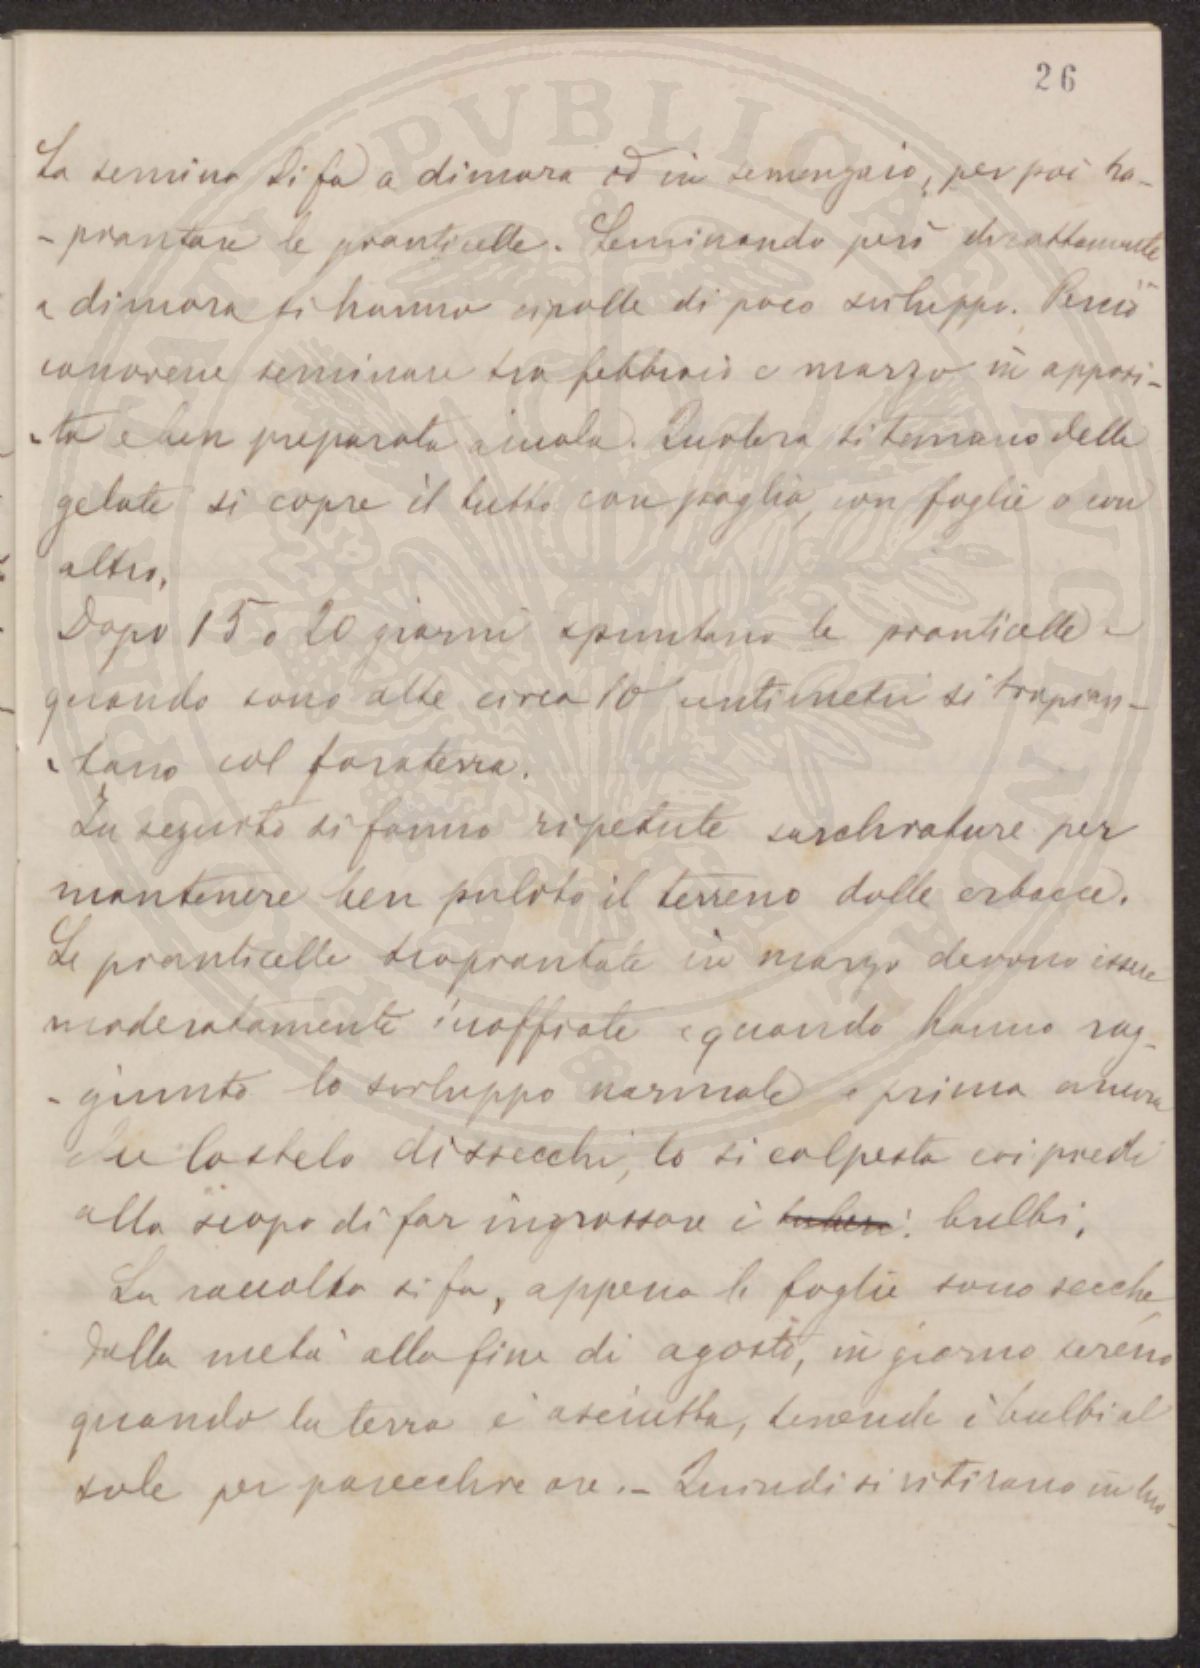 26
La semina si fa a dimora od in semenzaio, per poi tra-
-piantare le pianticelle. Seminando però direttamente
a dimora si hanno cipolle di poco sviluppo. Perciò
conviene seminare tra febbraio e marzo in apposi-
-ta e ben preparata aiuola. Qualora si temano delle
gelate si copre il tutto con paglia, con foglie o con
altro.
Dopo 15 o 20 giorni spuntano le pianticelle e
quando sono alte circa 10 centimetri si trapian-
-tano col foraterra.
In seguito si fanno ripetute sarchiature per
mantenere ben pulito il terreno dalle erbacce.
Le pianticelle trapiantate in marzo devono essere
moderatamente inaffiate e quando hanno rag-
-giunto lo sviluppo normale e prima ancora
che lo stelo dissecchi, lo si calpesta coi piedi
allo scopo di far ingrossare i tuberi: bulbi.
La raccolta si fa, appena le foglie sono secche,
dalla metà alla fine di agosto, in giorno sereno
quando la terra è asciutta, tenendo i bulbi al
sole per parecchie ore. - Quindi si ritirano in luo-